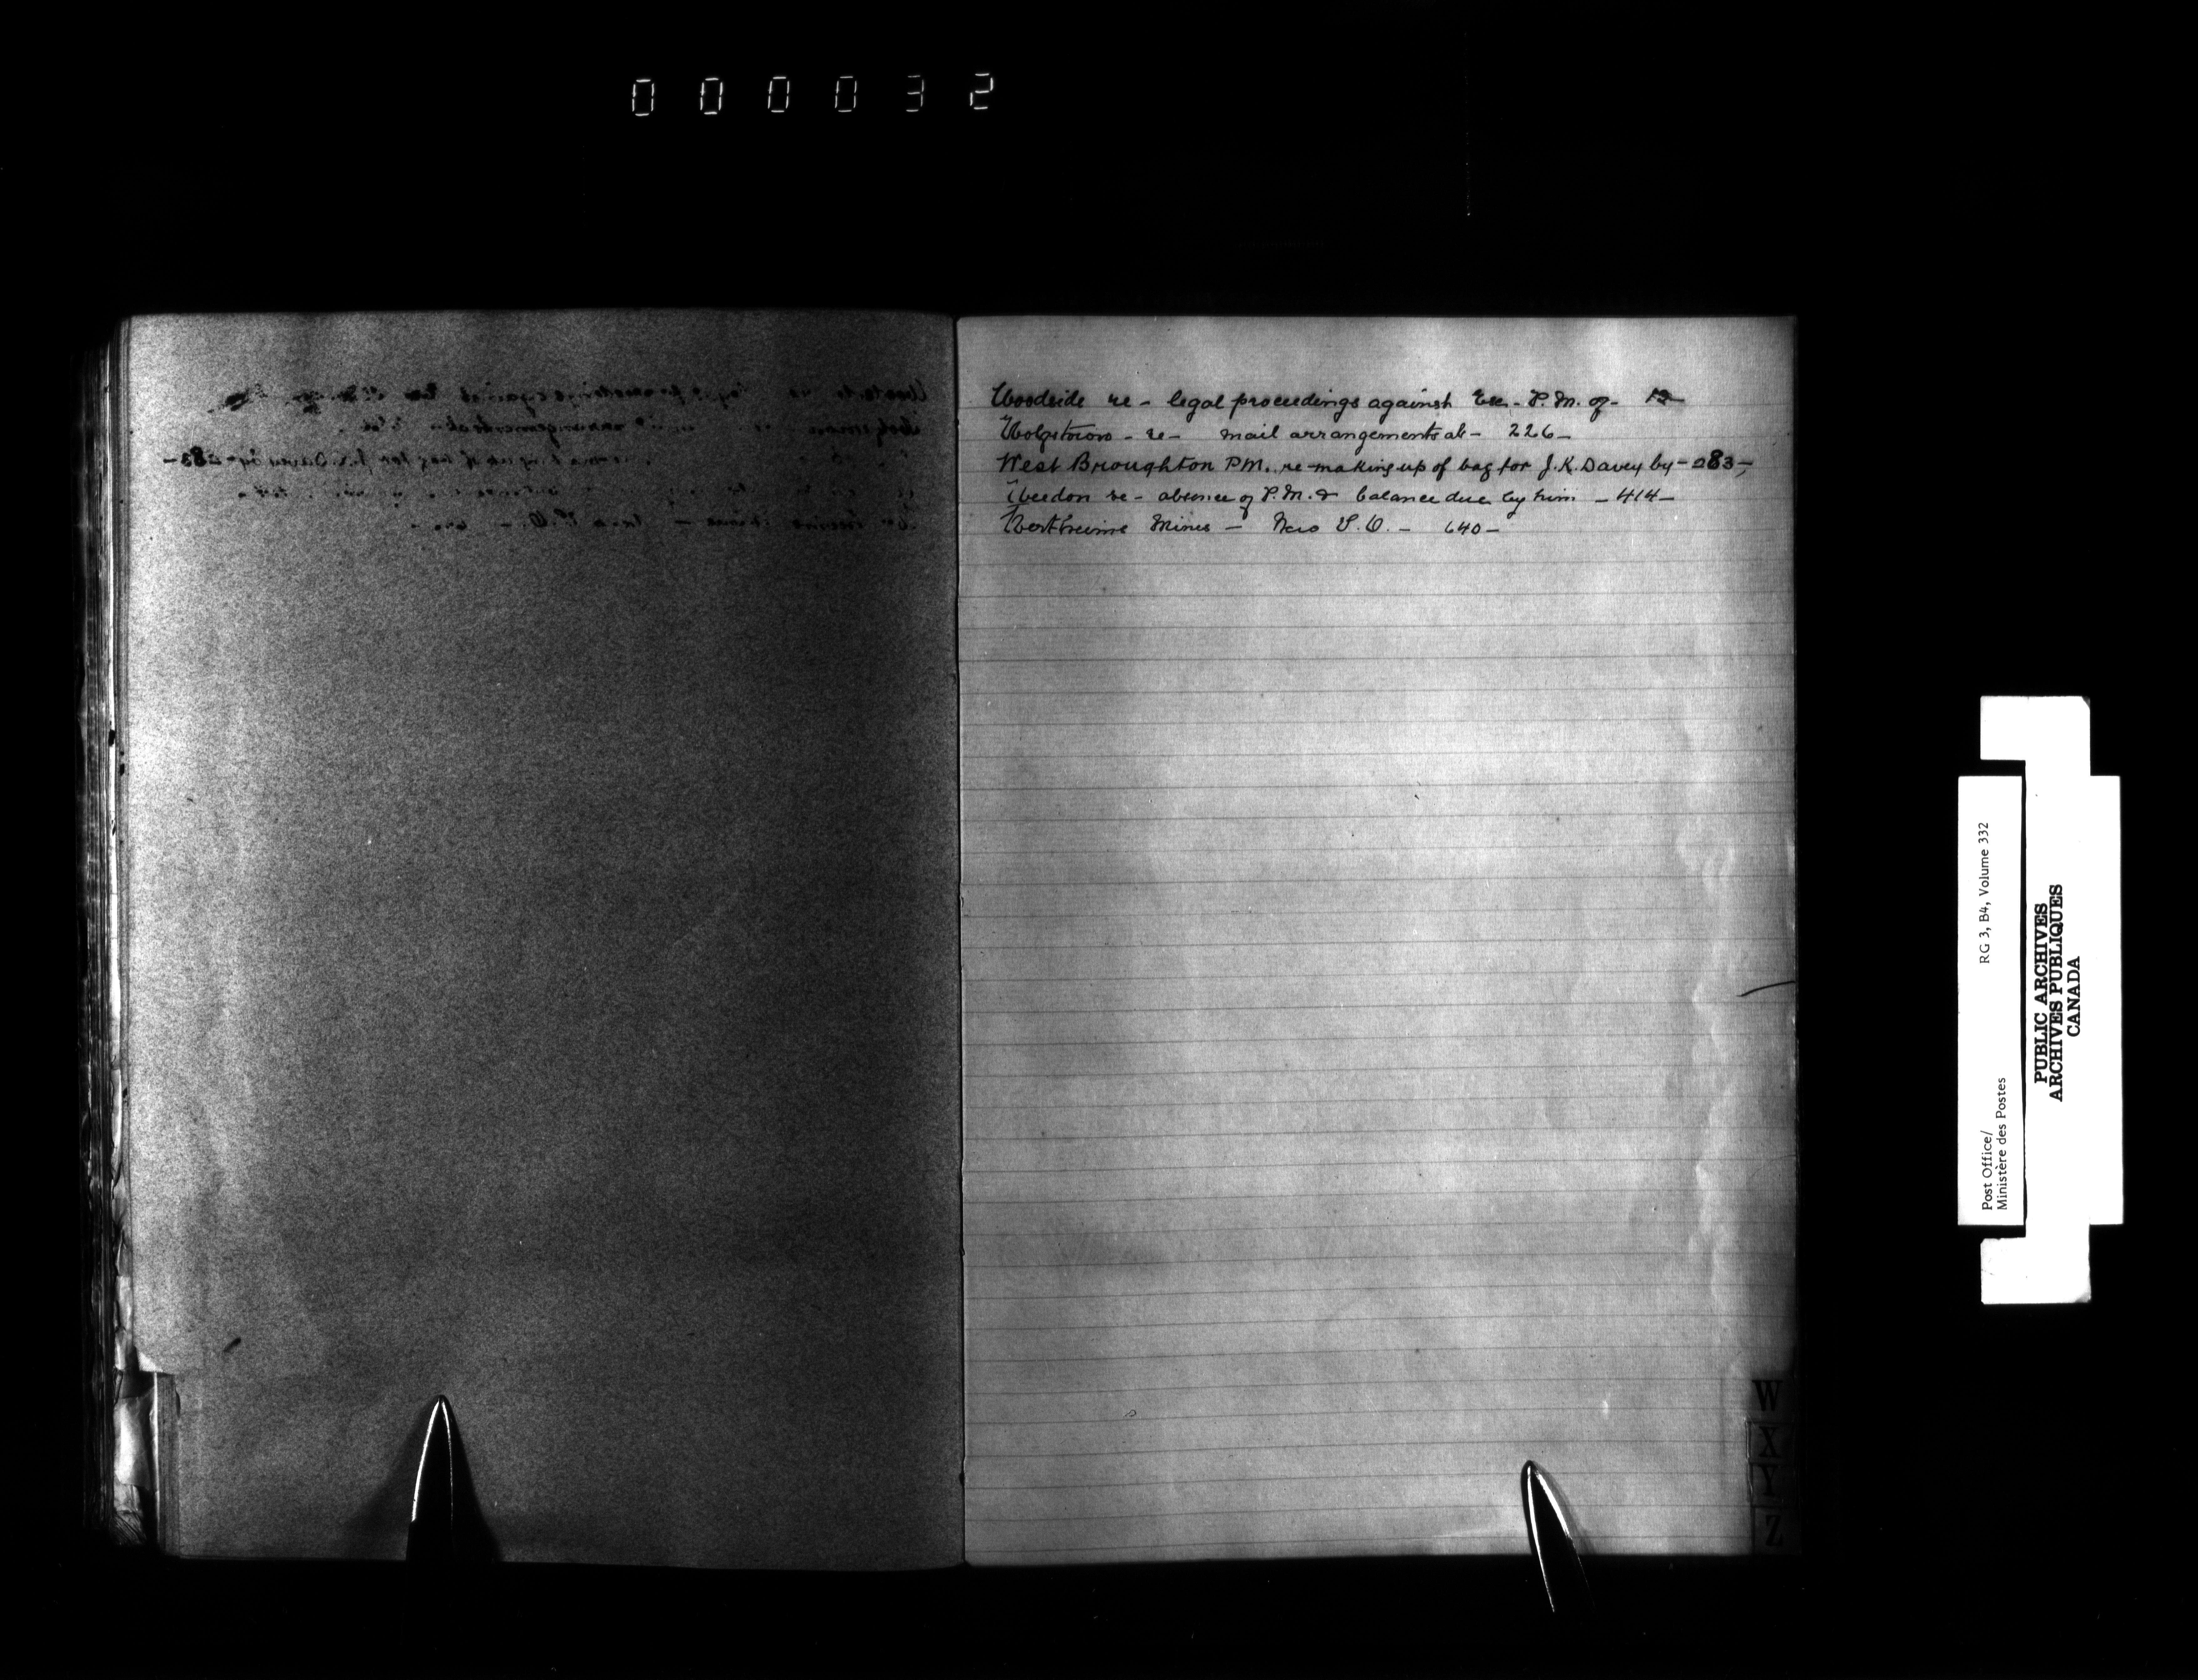 000032
Woodside re - legal proceedings against Ex - P.M. of - 12
Wolfstown - re - mail arrangements at - 226 -
West Broughton P.M., re-making up of bag for J.K. Davey by - 283 -,
Weedon re - absence of P.M. & balance due by him - 414 -
Mines - New P.O. - 640 -
W
X
Y
Z
Post Office/ RG 3, B4, Volume 332
Ministère des Postes
PUBLIC ARCHIVES
ARCHIVES PUBLIQUES
CANADA